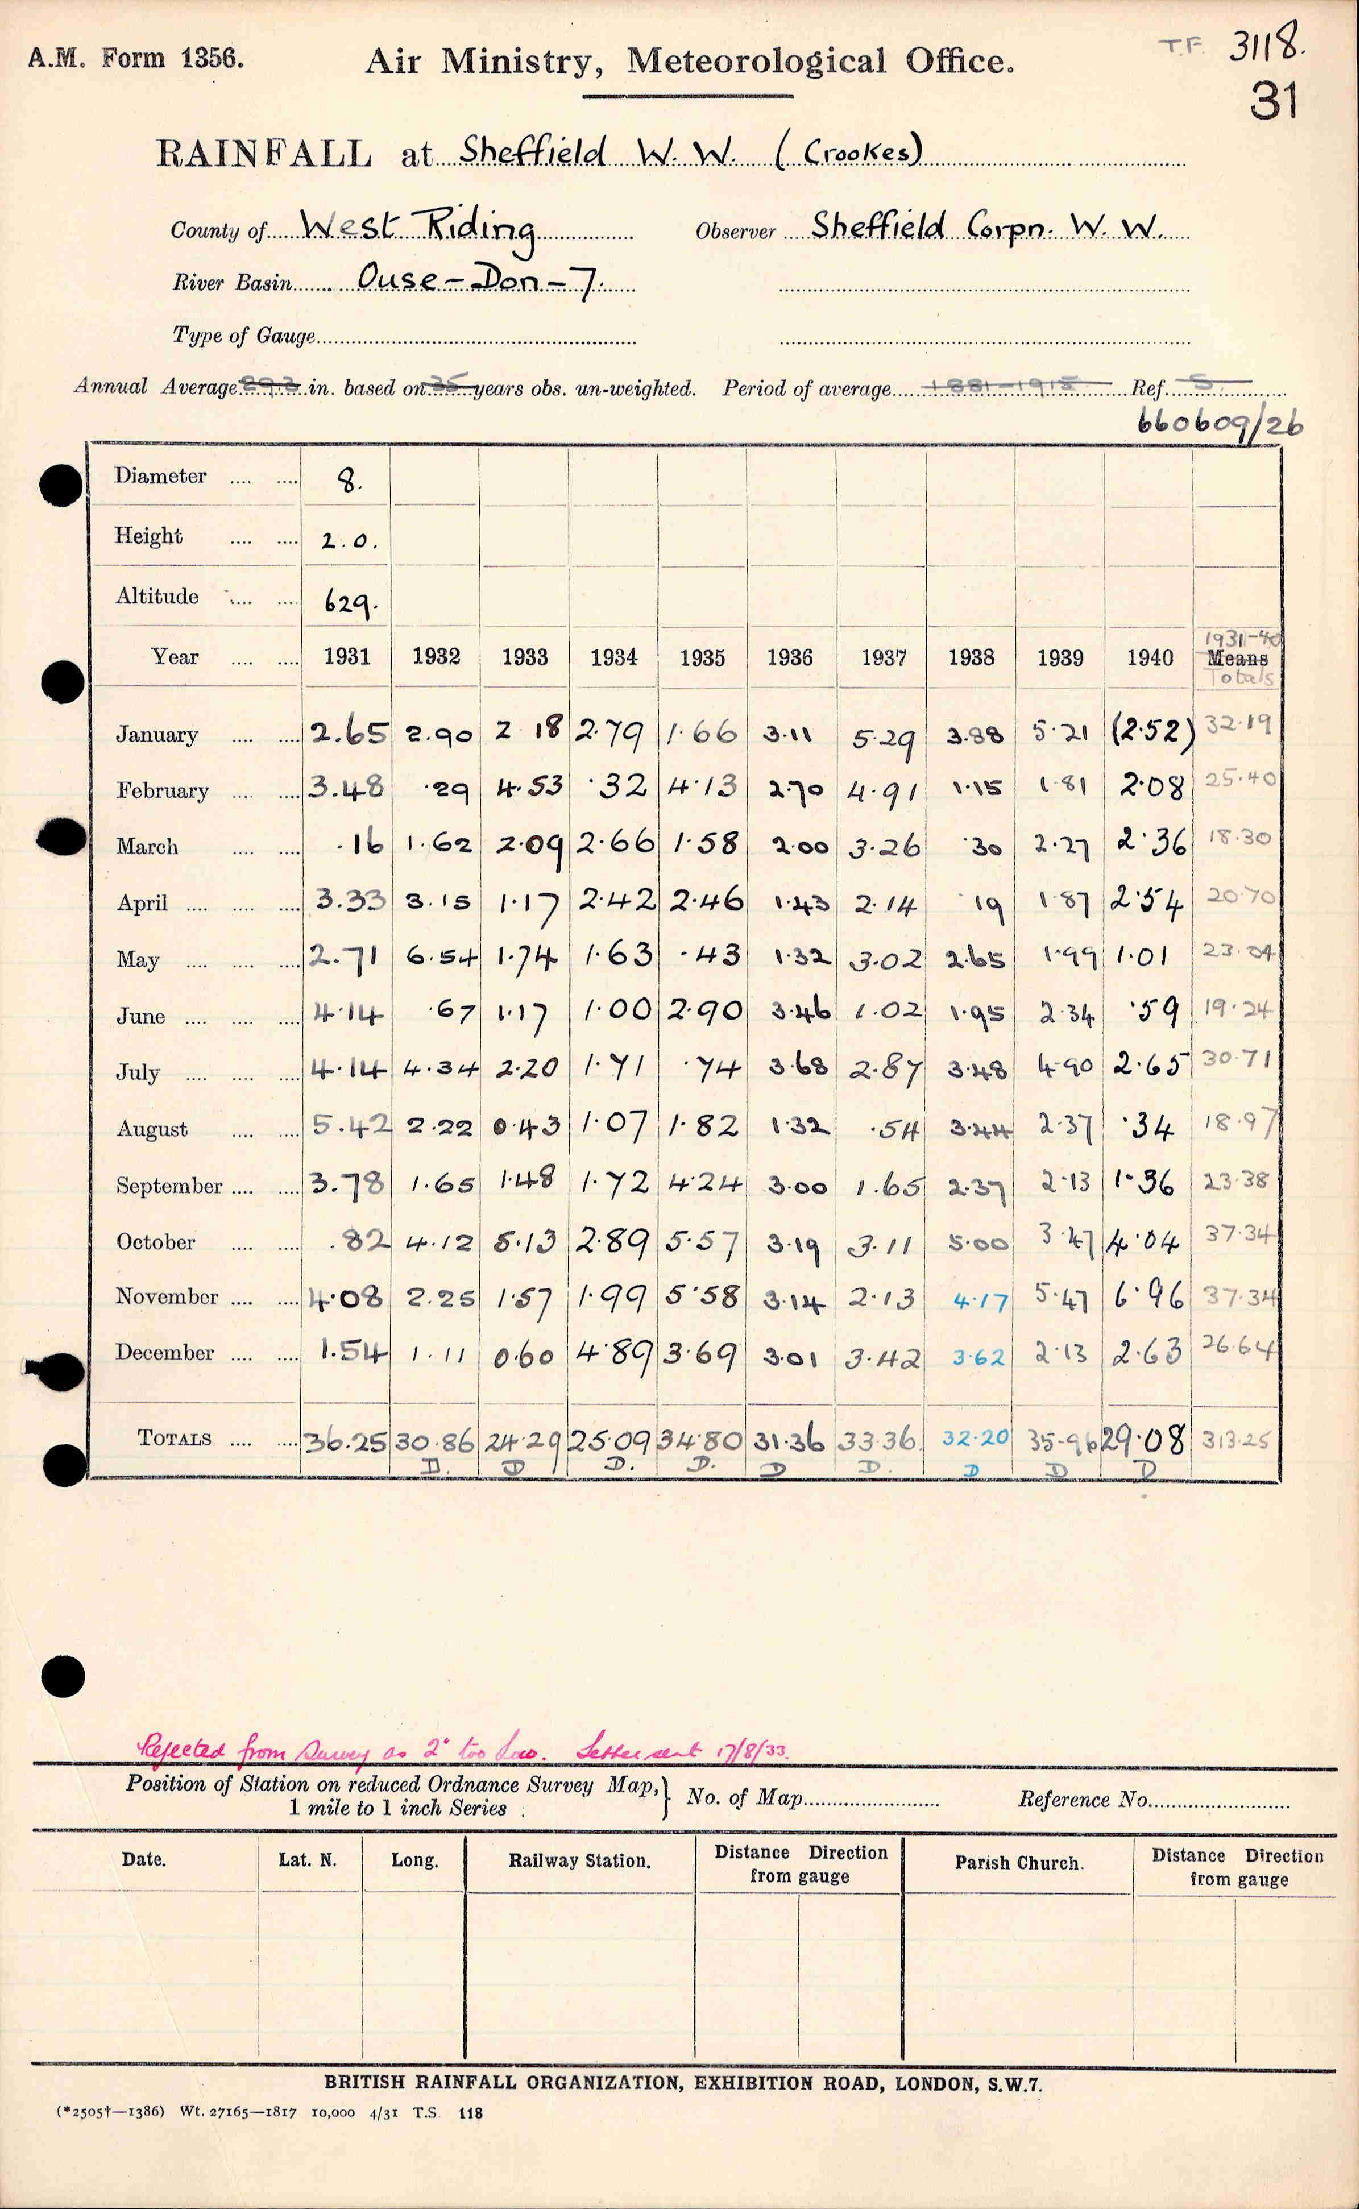 A.M. Form 1356.
Air Ministry, Meteorological Office.
T.F. 3118.
31
RAINFALL at Sheffield W. W. (Crookes)
County of West Riding Observer Sheffield Corpn. W. W.
River Basin Ouse - Don - 7.
Type of Gauge
Annual Average 29.3 in. based on 35 years obs. un-weighted. Period of average 1881-1915 Ref. S.
660609/26
Diameter 8.
Height 2.0.
Altitude 629.
1931-40
Year 1931 1932 1933 1934 1935 1936 1937 1938 1939 1940 Means
Totals
January 2.65 2.90 2 18 2.79 1.66 3.11 5.29 3.88 5.21 (2.52) 32.19
February 3.48 .29 4.53 .32 4.13 2.70 4.91 1.15 1.81 2.08 25.40
March .16 1.62 2.09 2.66 1.58 2.00 3.26 .30 2.27 2.36 18.30
April 3.33 3.15 1.17 2.42 2.46 1.43 2.14 .19 1.87 2.54 20.70
May 2.71 6.54 1.74 1.63 .43 1.32 3.02 2.65 1.99 1.01 23.04
June 4.14 .67 1.17 1.00 2.90 3.46 1.02 1.95 2.34 .59 19.24
July 4.14 4.34 2.20 1.71 .74 3.68 2.87 3.48 4.90 2.65 30.71
August 5.42 2.22 0.43 1.07 1.82 1.32 .54 3.44 2.37 .34 18.97
September 3.78 1.65 1.48 1.72 4.24 3.00 1.65 2.37 2.13 1.36 23.38
October .82 4.12 5.13 2.89 5.57 3.19 3.11 5.00 3.47 4.04 37.34
November 4.08 2.25 1.57 1.99 5.58 3.14 2.13 4.17 5.47 6.96 37.34
December 1.54 1.11 0.60 4.89 3.69 3.01 3.42 3.62 2.13 2.63 26.64
TOTALS 36.25 30.86 24.29 25.09 34.80 31.36 33.36 32.20 35.96 29.08 313.25
D. D D. D. D D. D D D
Rejected from Survey as 2" too low. Letter sent 17/8/33.
Position of Station on reduced Ordnance Survey Map, } No. of Map Reference No.
1 mile to 1 inch Series
Date. Lat. N. Long. Railway Station. Distance Direction from gauge Parish Church. Distance Direction from gauge
BRITISH RAINFALL ORGANIZATION, EXHIBITION ROAD, LONDON, S.W.7.
(*2505†—1386) Wt. 27165—1817 10,000 4/31 T.S. 118